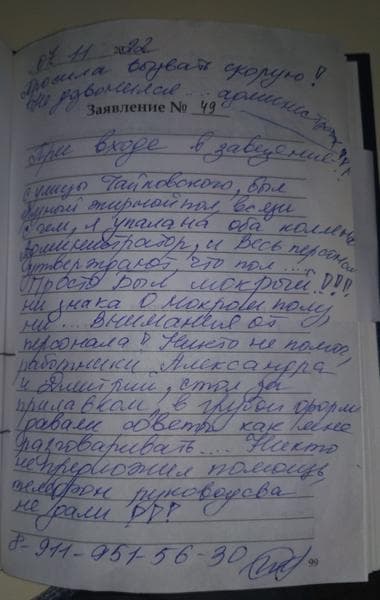 07 11 2022
Просила вызвать скорую!
Не дозвонился... администратор!!!
Заявление № 49
При входе в заведение!!
с улицы Чайковского, был
жирной пол, в связи
с чем, я упала на оба колена
администратор, и весь персонал
утверждают, что пол ....
Просто был мокрый!!!!
ни знака о мокром полу,
ни .... внимания от
персонала! Никто не помог,
работники Александра
и Дмитрий, стоя за
прилавком, в грубой форме
давали ответы как мне
разговаривать .... Никто
не предложил помощь,
телефон руководсва
не дали !!!
8-911-951-56-30
99